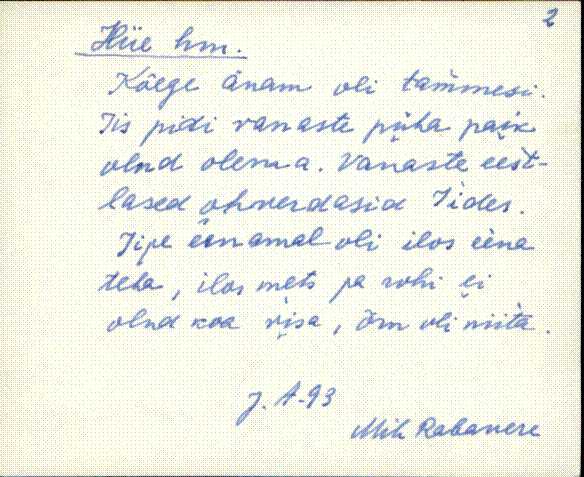 2
Hiie hm.
Kõege änam oli tammesi.
Iis pidi vanaste püha paik
olnd olema. Vanaste eest-
lased ohverdasid Iides.
Iipe eenamal oli ilos eena
teha, ilos mets ja rohi ei
olnd koa visa, õrn oli niita.
J. A-93
Mih Rabavere